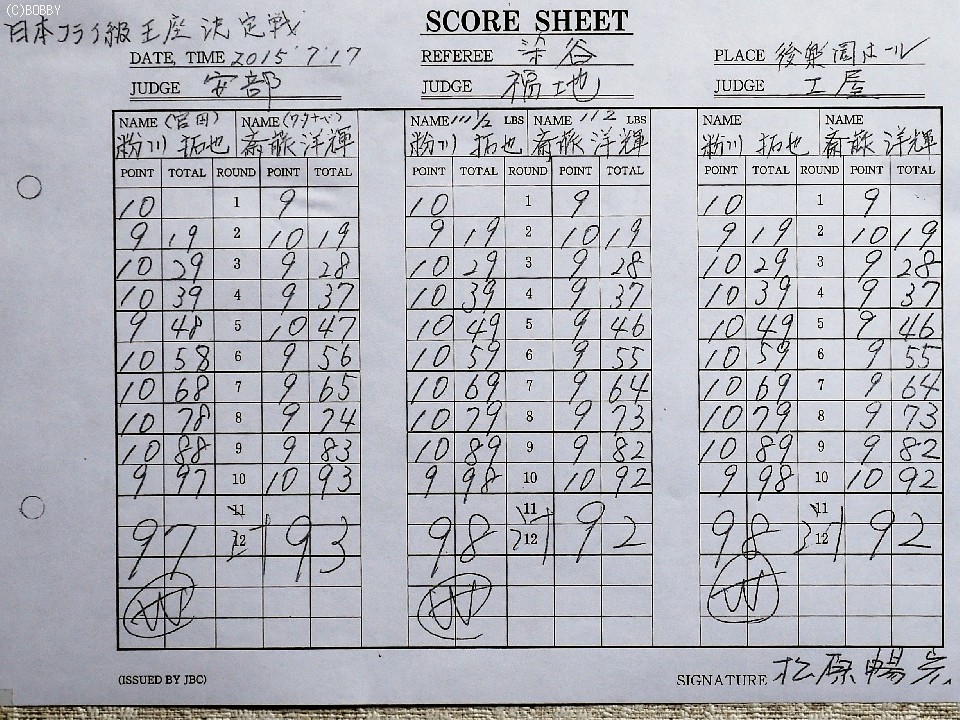 (C)BOBBY
日本フライ級王座決定戦
SCORE SHEET
DATE, TIME 2015 7 17 REFEREE 染谷 PLACE 後楽園ホール
JUDGE 安部 JUDGE 福地 JUDGE 土屋
NAME (宮田) NAME (ワタナベ) NAME 111 1/2 LBS NAME 112 LBS NAME NAME
粉川 拓也 斎藤 洋輝 粉川 拓也 斎藤 洋輝 粉川 拓也 斎藤 洋輝
POINT TOTAL ROUND POINT TOTAL POINT TOTAL ROUND POINT TOTAL POINT TOTAL ROUND POINT TOTAL
10 1 9 10 1 9 10 1 9
9 19 2 10 19 9 19 2 10 19 9 19 2 10 19
10 29 3 9 28 10 29 3 9 28 10 29 3 9 28
10 39 4 9 37 10 39 4 9 37 10 39 4 9 37
9 48 5 10 47 10 49 5 9 46 10 49 5 9 46
10 58 6 9 56 10 59 6 9 55 10 59 6 9 55
10 68 7 9 65 10 69 7 9 64 10 69 7 9 64
10 78 8 9 74 10 79 8 9 73 10 79 8 9 73
10 88 9 9 83 10 89 9 9 82 10 89 9 9 82
9 97 10 10 93 9 98 10 10 92 9 98 10 10 92
11 11 11
97 12 93 98 12 92 98 12 92
W W W
(ISSUED BY JBC) SIGNATURE 松原